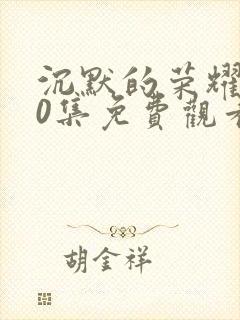 沉默的荣耀
0集免費觀看
胡金祥